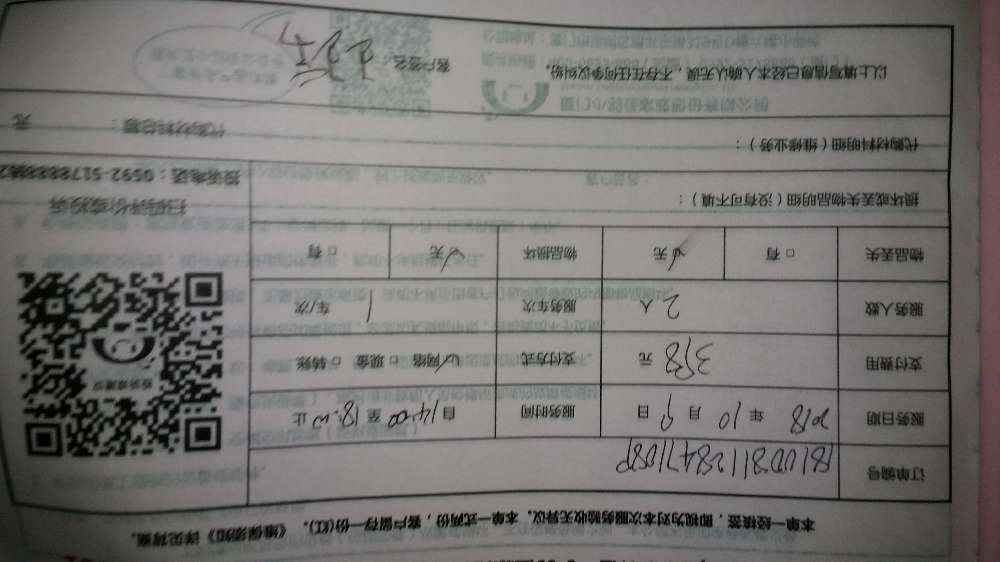 本单一经核签，即视为对本次服务验收无异议。本单一式两份，客户留存一份(红)。《维保须知》详见背面。
订单编号
服务日期 2018 年 10 月 9 日 服务时间 自 14:00 至 18:00 止
支付费用 358 元 支付方式 ☑网络 □现金 □转账
服务人数 2 人 服务车次 1 车/次
物品丢失 □有 ☑无 物品损坏 ☑无 □有
损坏或丢失物品明细（没有可不填）：
扫码评价或投诉
投诉电话：0592-5178888转2
代购材料明细（维修业务）：
代购材料总额： 元
以上填写信息已经本人确认无误，不存在任何争议纠纷。
客户签名